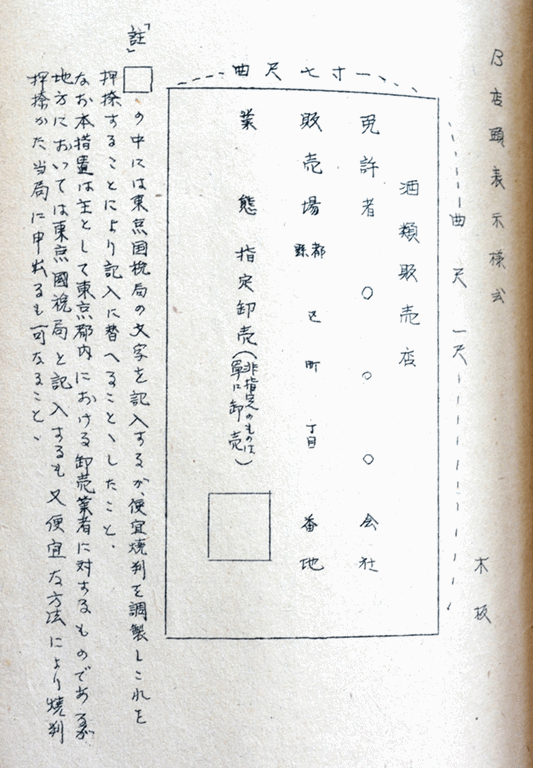 B店頭表示様式
木板
曲尺一尺
曲尺七寸
酒類販売店
免許者 〇〇〇会社
販売場 都縣 区 町 丁目 番地
業態 指定卸売(非指定のものは、単に卸売)
「註」
□の中には東京国税局の文字を記入するが、便宜焼判を調製しこれを
押捺することにより記入に替へることゝしたこと、
なお本措置は主として東京都内における卸売業者に対するものであるが
地方においては東京國税局と記入するも又便宜な方法により焼判
押捺かた当局に申出るも可なること、